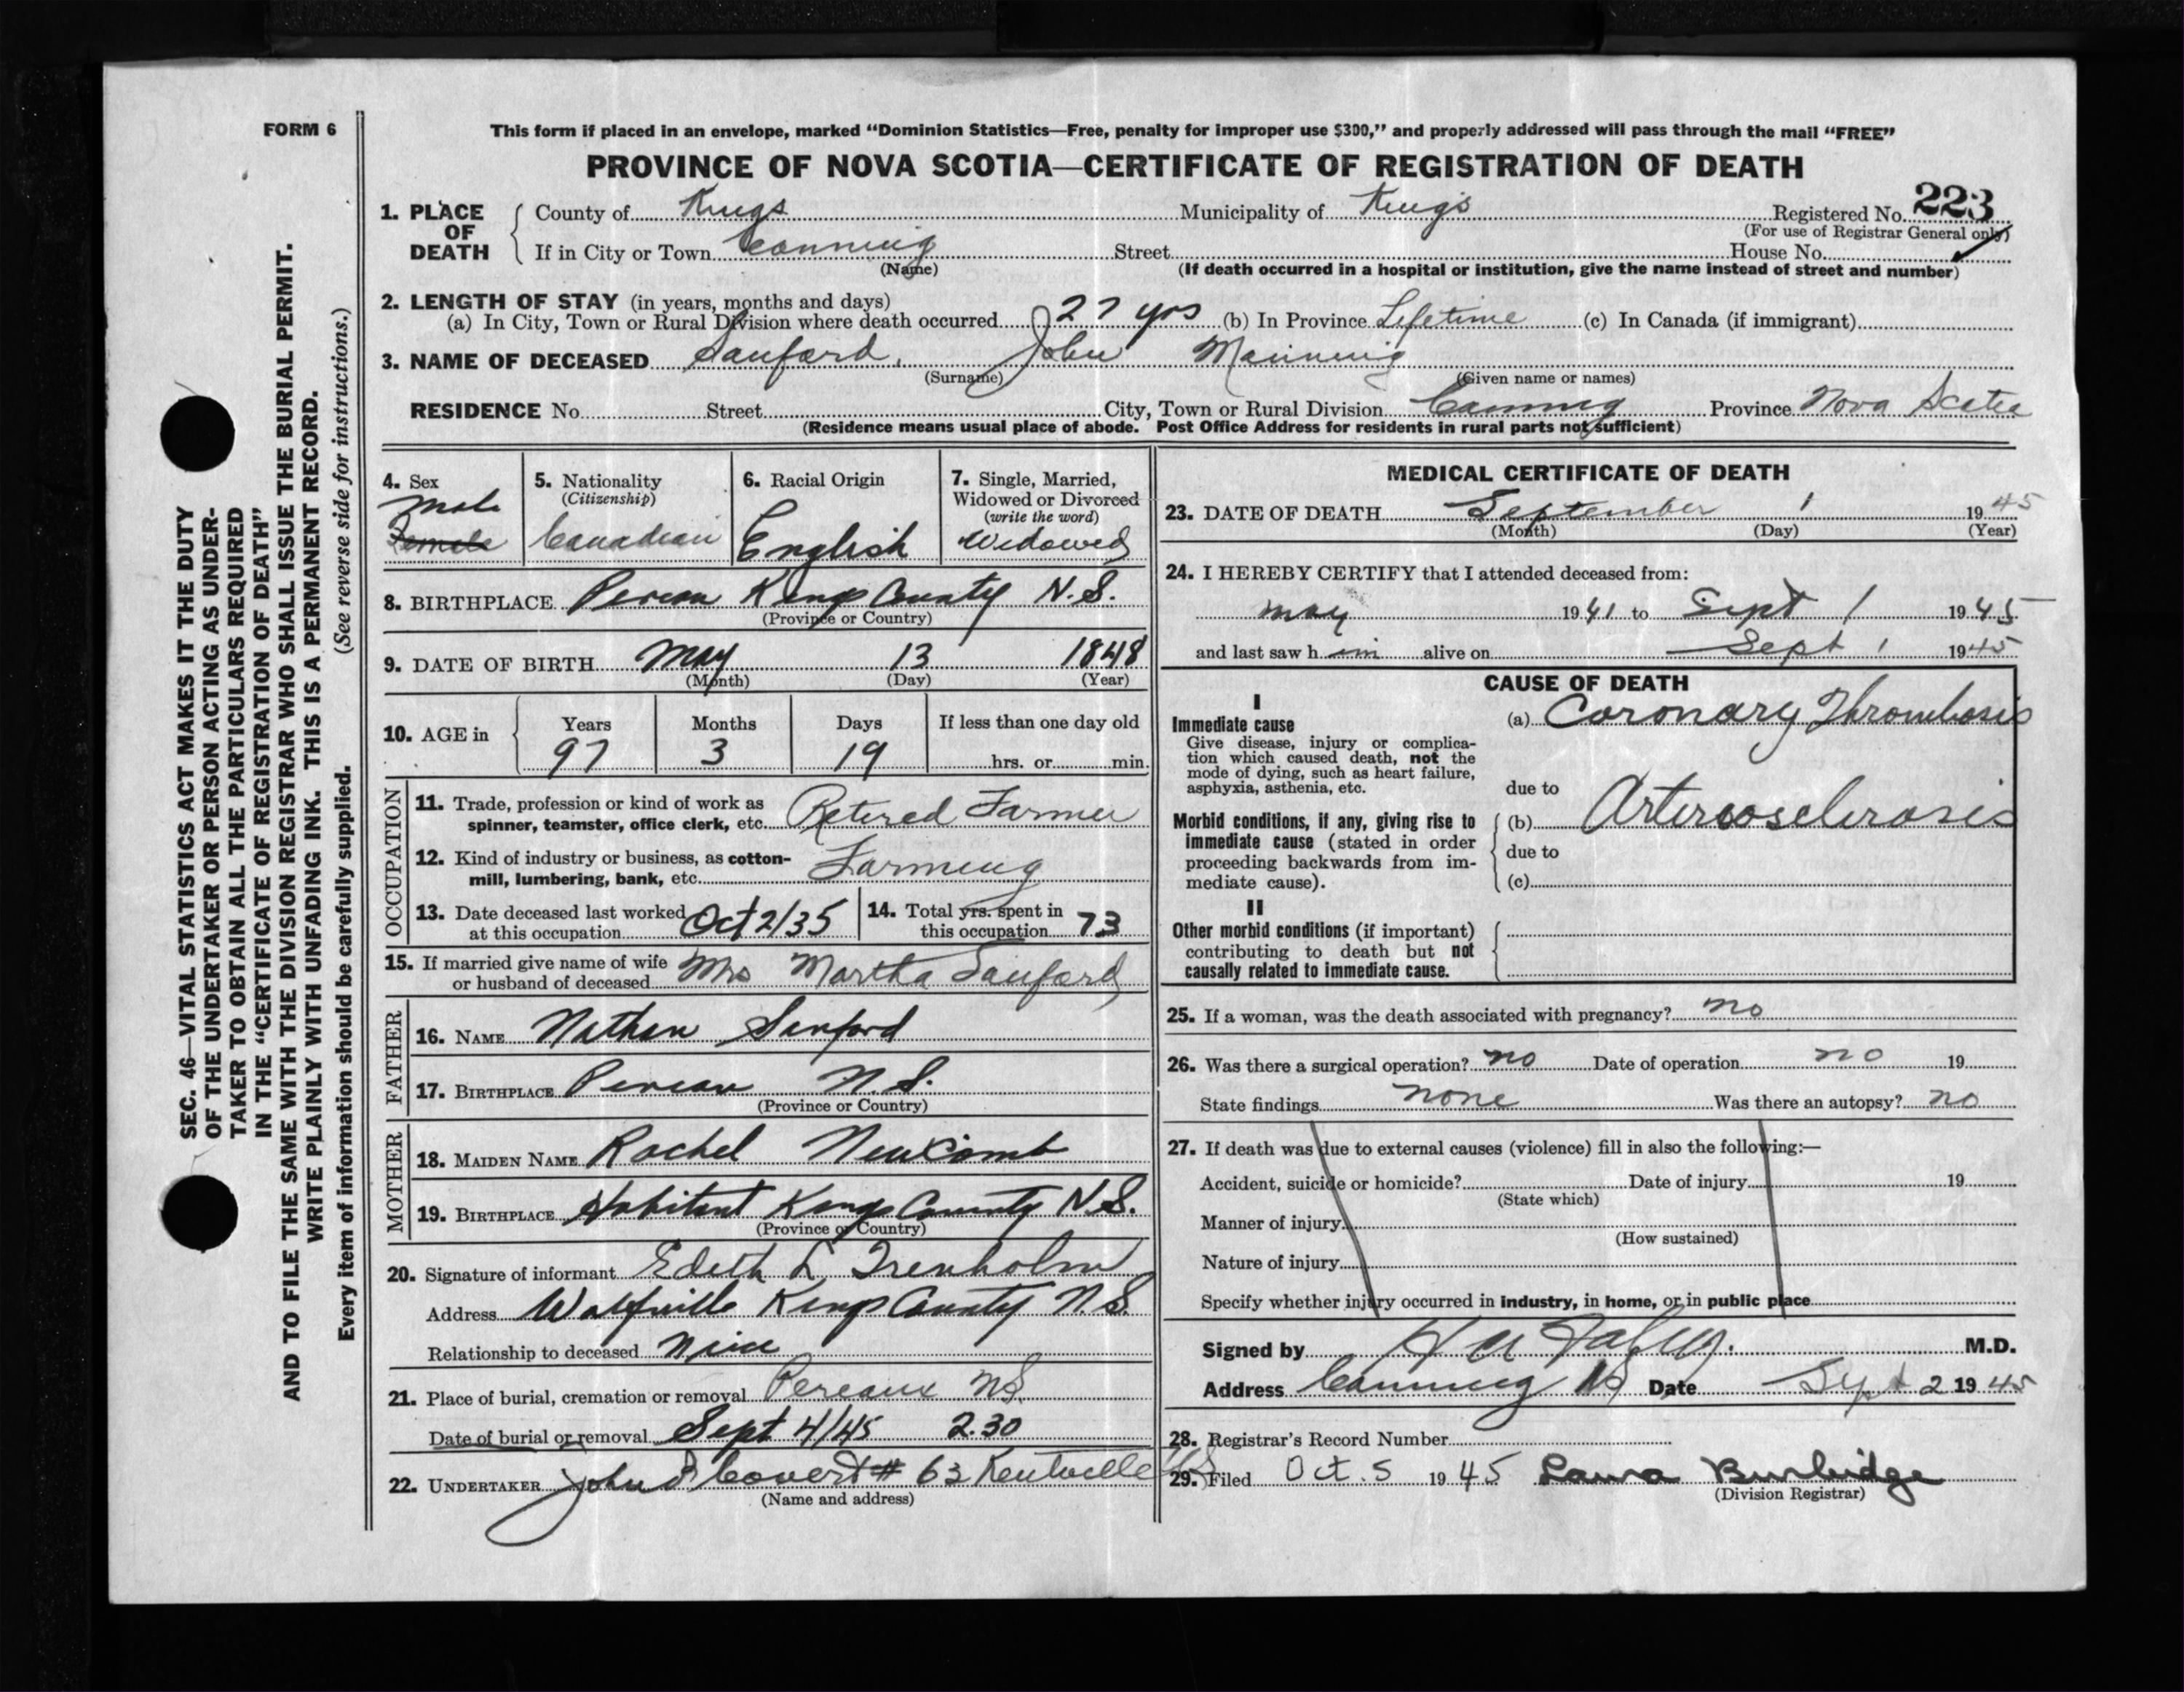 FORM 6
This form if placed in an envelope, marked “Dominion Statistics—Free, penalty for improper use $300,” and properly addressed will pass through the mail “FREE”
PROVINCE OF NOVA SCOTIA—CERTIFICATE OF REGISTRATION OF DEATH
1. PLACE OF DEATH
County of Kings Municipality of Kings Registered No. 223
(For use of Registrar General only)
If in City or Town Canning Street House No.
(Name) (If death occurred in a hospital or institution, give the name instead of street and number)
2. LENGTH OF STAY (in years, months and days)
(a) In City, Town or Rural Division where death occurred 27 yrs (b) In Province Lifetime (c) In Canada (if immigrant)
3. NAME OF DECEASED Sanford, John Manning
(Surname) (Given name or names)
RESIDENCE No. Street City, Town or Rural Division Canning Province Nova Scotia
(Residence means usual place of abode. Post Office Address for residents in rural parts not sufficient)
4. Sex
Male
Female
5. Nationality
(Citizenship)
Canadian
6. Racial Origin
English
7. Single, Married,
Widowed or Divorced
(write the word)
Widowed
8. BIRTHPLACE Kings County N.S.
(Province or Country)
9. DATE OF BIRTH May 13 1848
(Month) (Day) (Year)
10. AGE in
Years Months Days If less than one day old
97 3 19 hrs. or min.
OCCUPATION
11. Trade, profession or kind of work as
spinner, teamster, office clerk, etc. Retired Farmer
12. Kind of industry or business, as cotton-
mill, lumbering, bank, etc. Farming
13. Date deceased last worked
at this occupation Oct 2/35
14. Total yrs. spent in
this occupation 73
15. If married give name of wife
or husband of deceased Mrs Martha Sanford
FATHER
16. NAME Nathan Sanford
17. BIRTHPLACE N.S.
(Province or Country)
MOTHER
18. MAIDEN NAME Rachel Newcomb
19. BIRTHPLACE Habitant Kings County N.S.
(Province or Country)
20. Signature of informant Edith L Trenholm
Address Wolfville Kings County N.S.
Relationship to deceased Niece
21. Place of burial, cremation or removal Pereaux NS
Date of burial or removal Sept 4/45 2.30
22. UNDERTAKER John Covert # 63 Kentville NS
(Name and address)
MEDICAL CERTIFICATE OF DEATH
23. DATE OF DEATH September 1 1945
(Month) (Day) (Year)
24. I HEREBY CERTIFY that I attended deceased from:
May 1941 to Sept 1 1945
and last saw h im alive on Sept 1 1945
CAUSE OF DEATH
I
Immediate cause
Give disease, injury or complica-
tion which caused death, not the
mode of dying, such as heart failure,
asphyxia, asthenia, etc.
(a) Coronary Thrombosis
due to
Morbid conditions, if any, giving rise to
immediate cause (stated in order
proceeding backwards from im-
mediate cause).
(b) Arteriosclerosis
due to
(c)
II
Other morbid conditions (if important)
contributing to death but not
causally related to immediate cause.
25. If a woman, was the death associated with pregnancy? no
26. Was there a surgical operation? no Date of operation no 19
State findings none Was there an autopsy? no
27. If death was due to external causes (violence) fill in also the following:—
Accident, suicide or homicide? Date of injury 19
(State which)
Manner of injury
(How sustained)
Nature of injury
Specify whether injury occurred in industry, in home, or in public place
Signed by M.D.
Address Canning NS Date Sept 2 1945
28. Registrar's Record Number
29. Filed Oct. 5 1945 Laura Burbidge
(Division Registrar)
SEC. 46—VITAL STATISTICS ACT MAKES IT THE DUTY
OF THE UNDERTAKER OR PERSON ACTING AS UNDER-
TAKER TO OBTAIN ALL THE PARTICULARS REQUIRED
IN THE “CERTIFICATE OF REGISTRATION OF DEATH”
AND TO FILE THE SAME WITH THE DIVISION REGISTRAR WHO SHALL ISSUE THE BURIAL PERMIT.
WRITE PLAINLY WITH UNFADING INK. THIS IS A PERMANENT RECORD.
Every item of information should be carefully supplied. (See reverse side for instructions.)